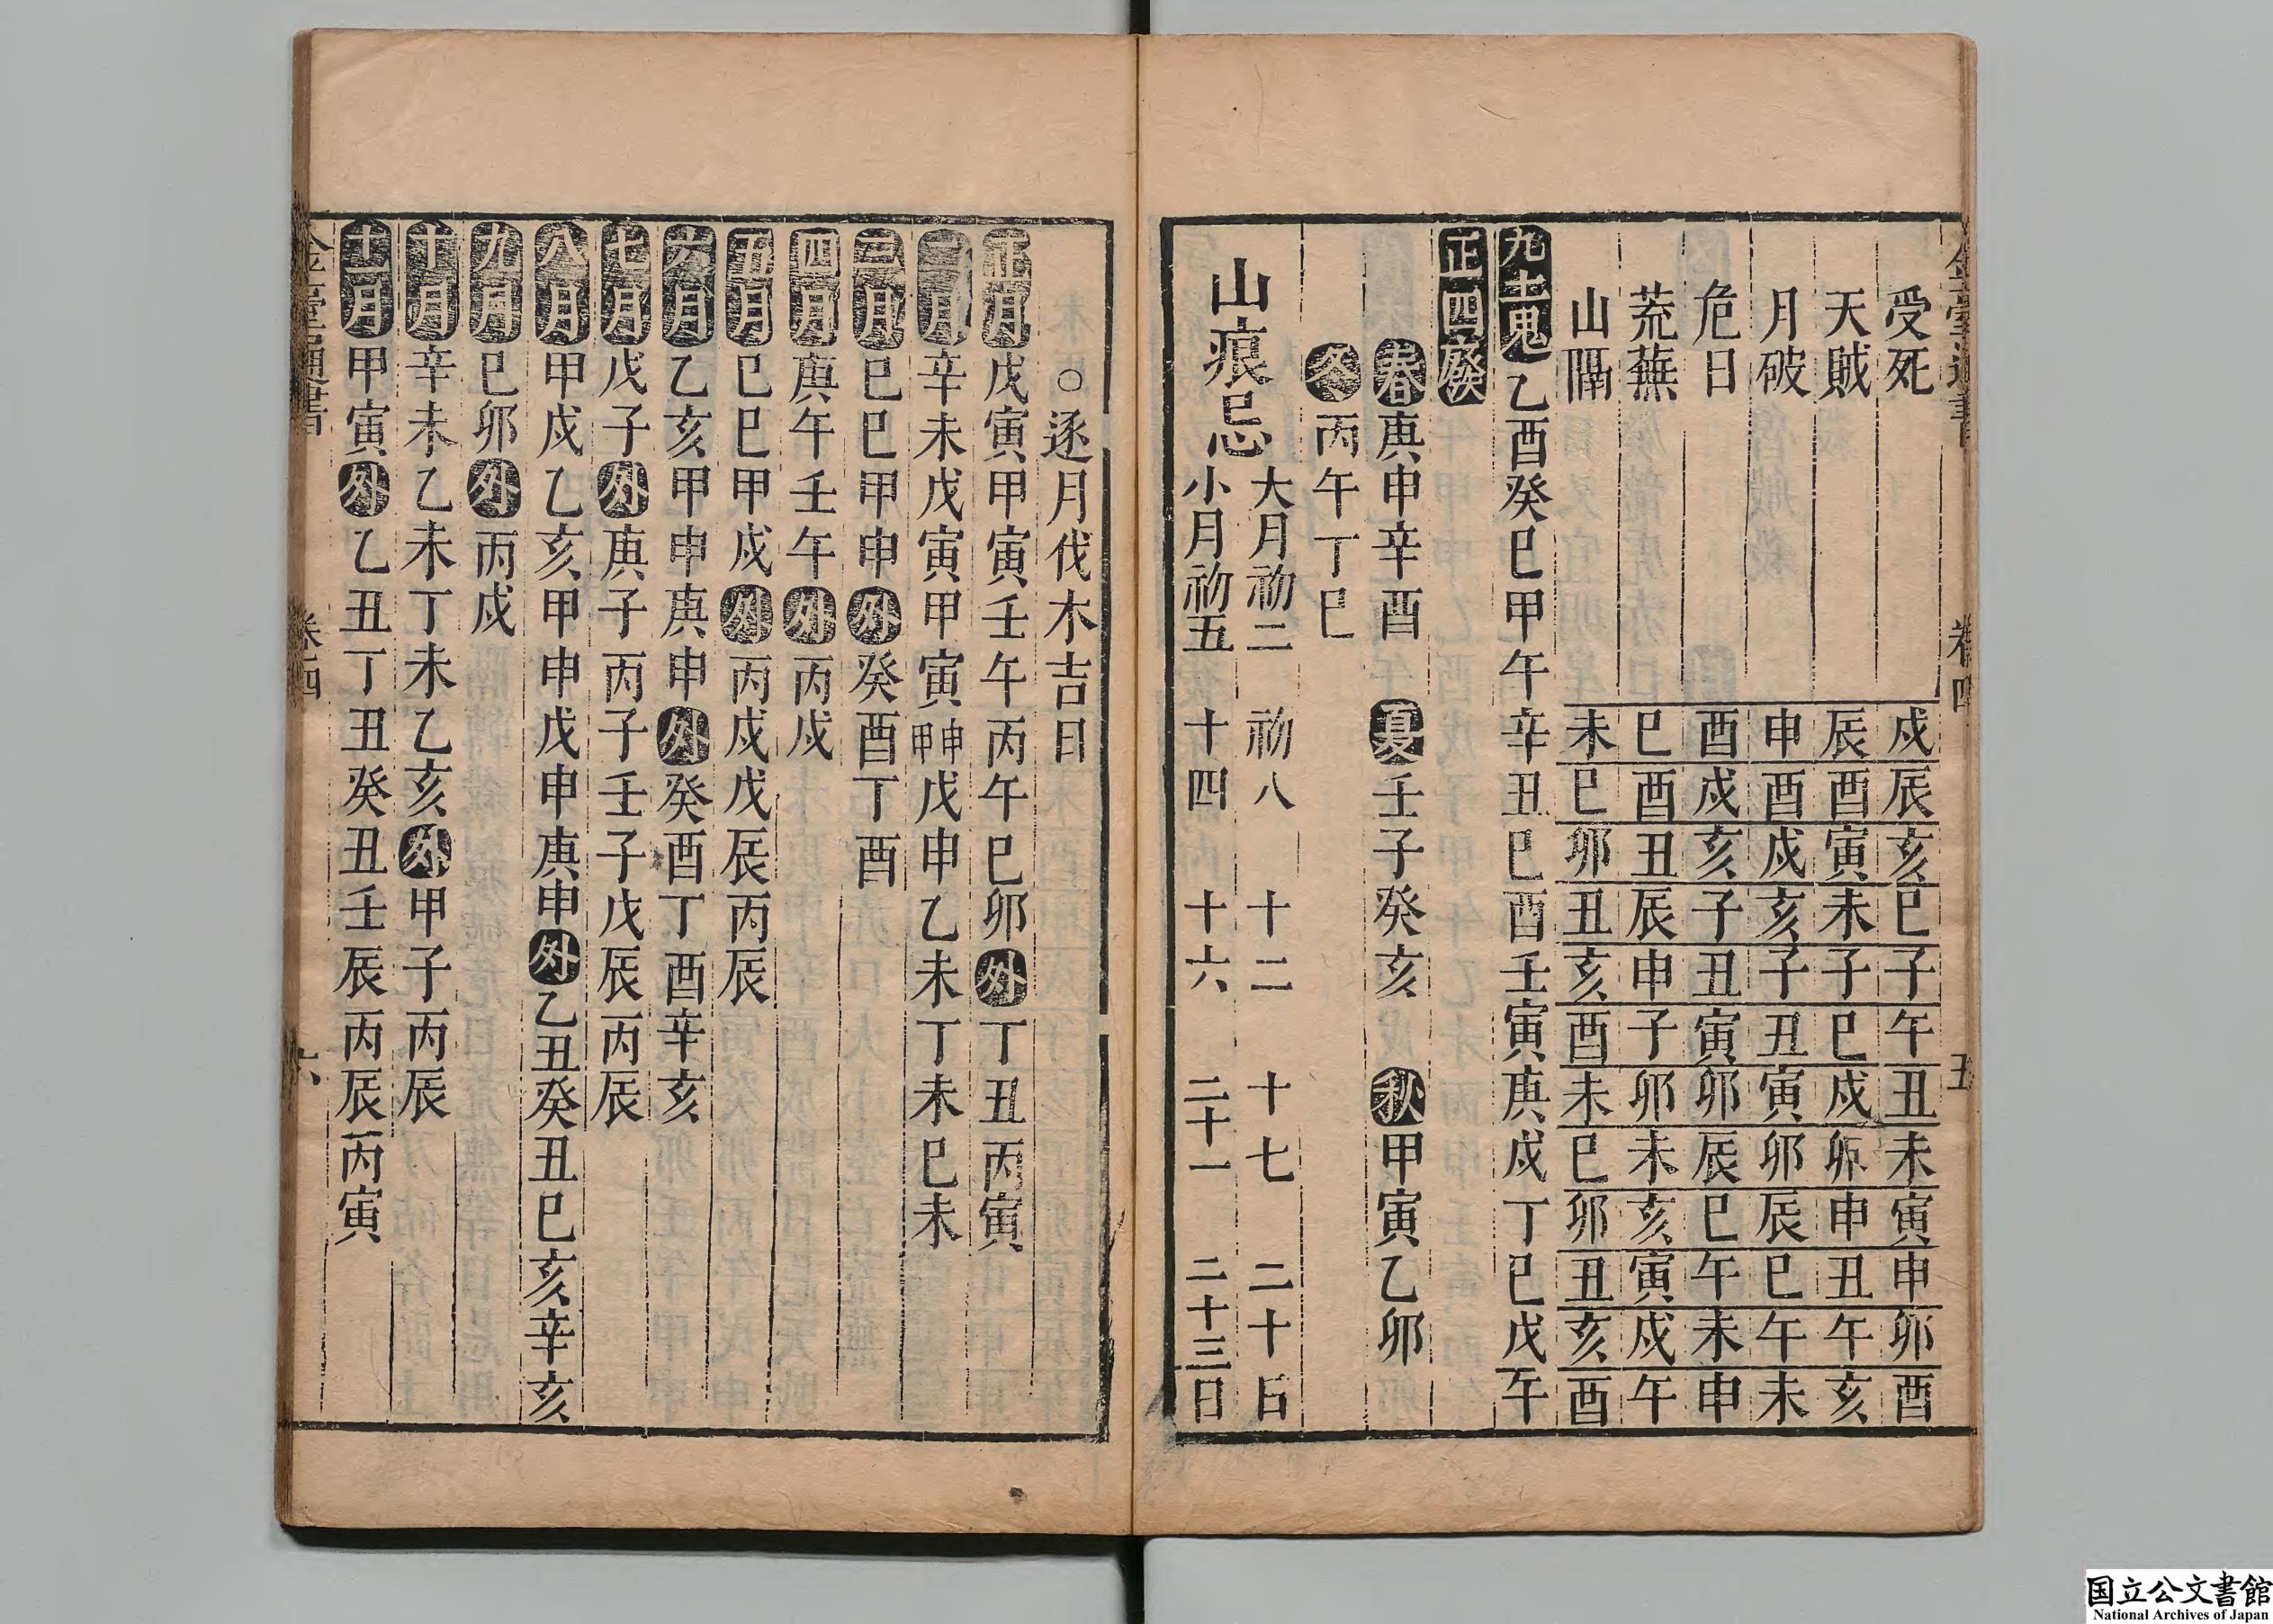 受死 戌 辰 亥 巳 子 午 丑 未 寅 申 卯 酉
天賊 辰 酉 寅 未 子 巳 戌 卯 申 丑 午 亥
月破 申 酉 戌 亥 子 丑 寅 卯 辰 巳 午 未
危日 酉 戌 亥 子 丑 寅 卯 辰 巳 午 未 申
荒蕪 巳 酉 丑 辰 申 子 卯 未 亥 寅 戌 午
山隔 未 巳 卯 丑 亥 酉 未 巳 卯 丑 亥 酉
九土鬼 乙酉癸巳甲午辛丑巳酉壬寅庚戌丁巳戊午
正四廢
春庚申辛酉 夏壬子癸亥 秋甲寅乙卯
冬丙午丁巳
山痕忌
大月初二 初八 十二 十七 二十日
小月初五 十四 十六 二十一 二十三日
卷四 五
○逐月伐木吉日
正月戊寅甲寅壬午丙午巳卯外丁丑丙寅
二月辛未戊寅甲寅甲申戊申乙未丁未巳未
三月巳巳甲申外癸酉丁酉
四月庚午壬午外丙戌
五月巳巳甲戌外丙戌戊辰丙辰
六月乙亥甲申庚申外癸酉丁酉辛亥
七月戊子外庚子丙子壬子戊辰丙辰
八月甲戌乙亥甲申戊申庚申外乙丑癸丑巳亥辛亥
九月巳卯外丙戌
十月辛未乙未丁未乙亥外甲子丙辰
十一月甲寅外乙丑丁丑癸丑壬辰丙辰丙寅
金臺通書 卷四 六
国立公文書館
National Archives of Japan